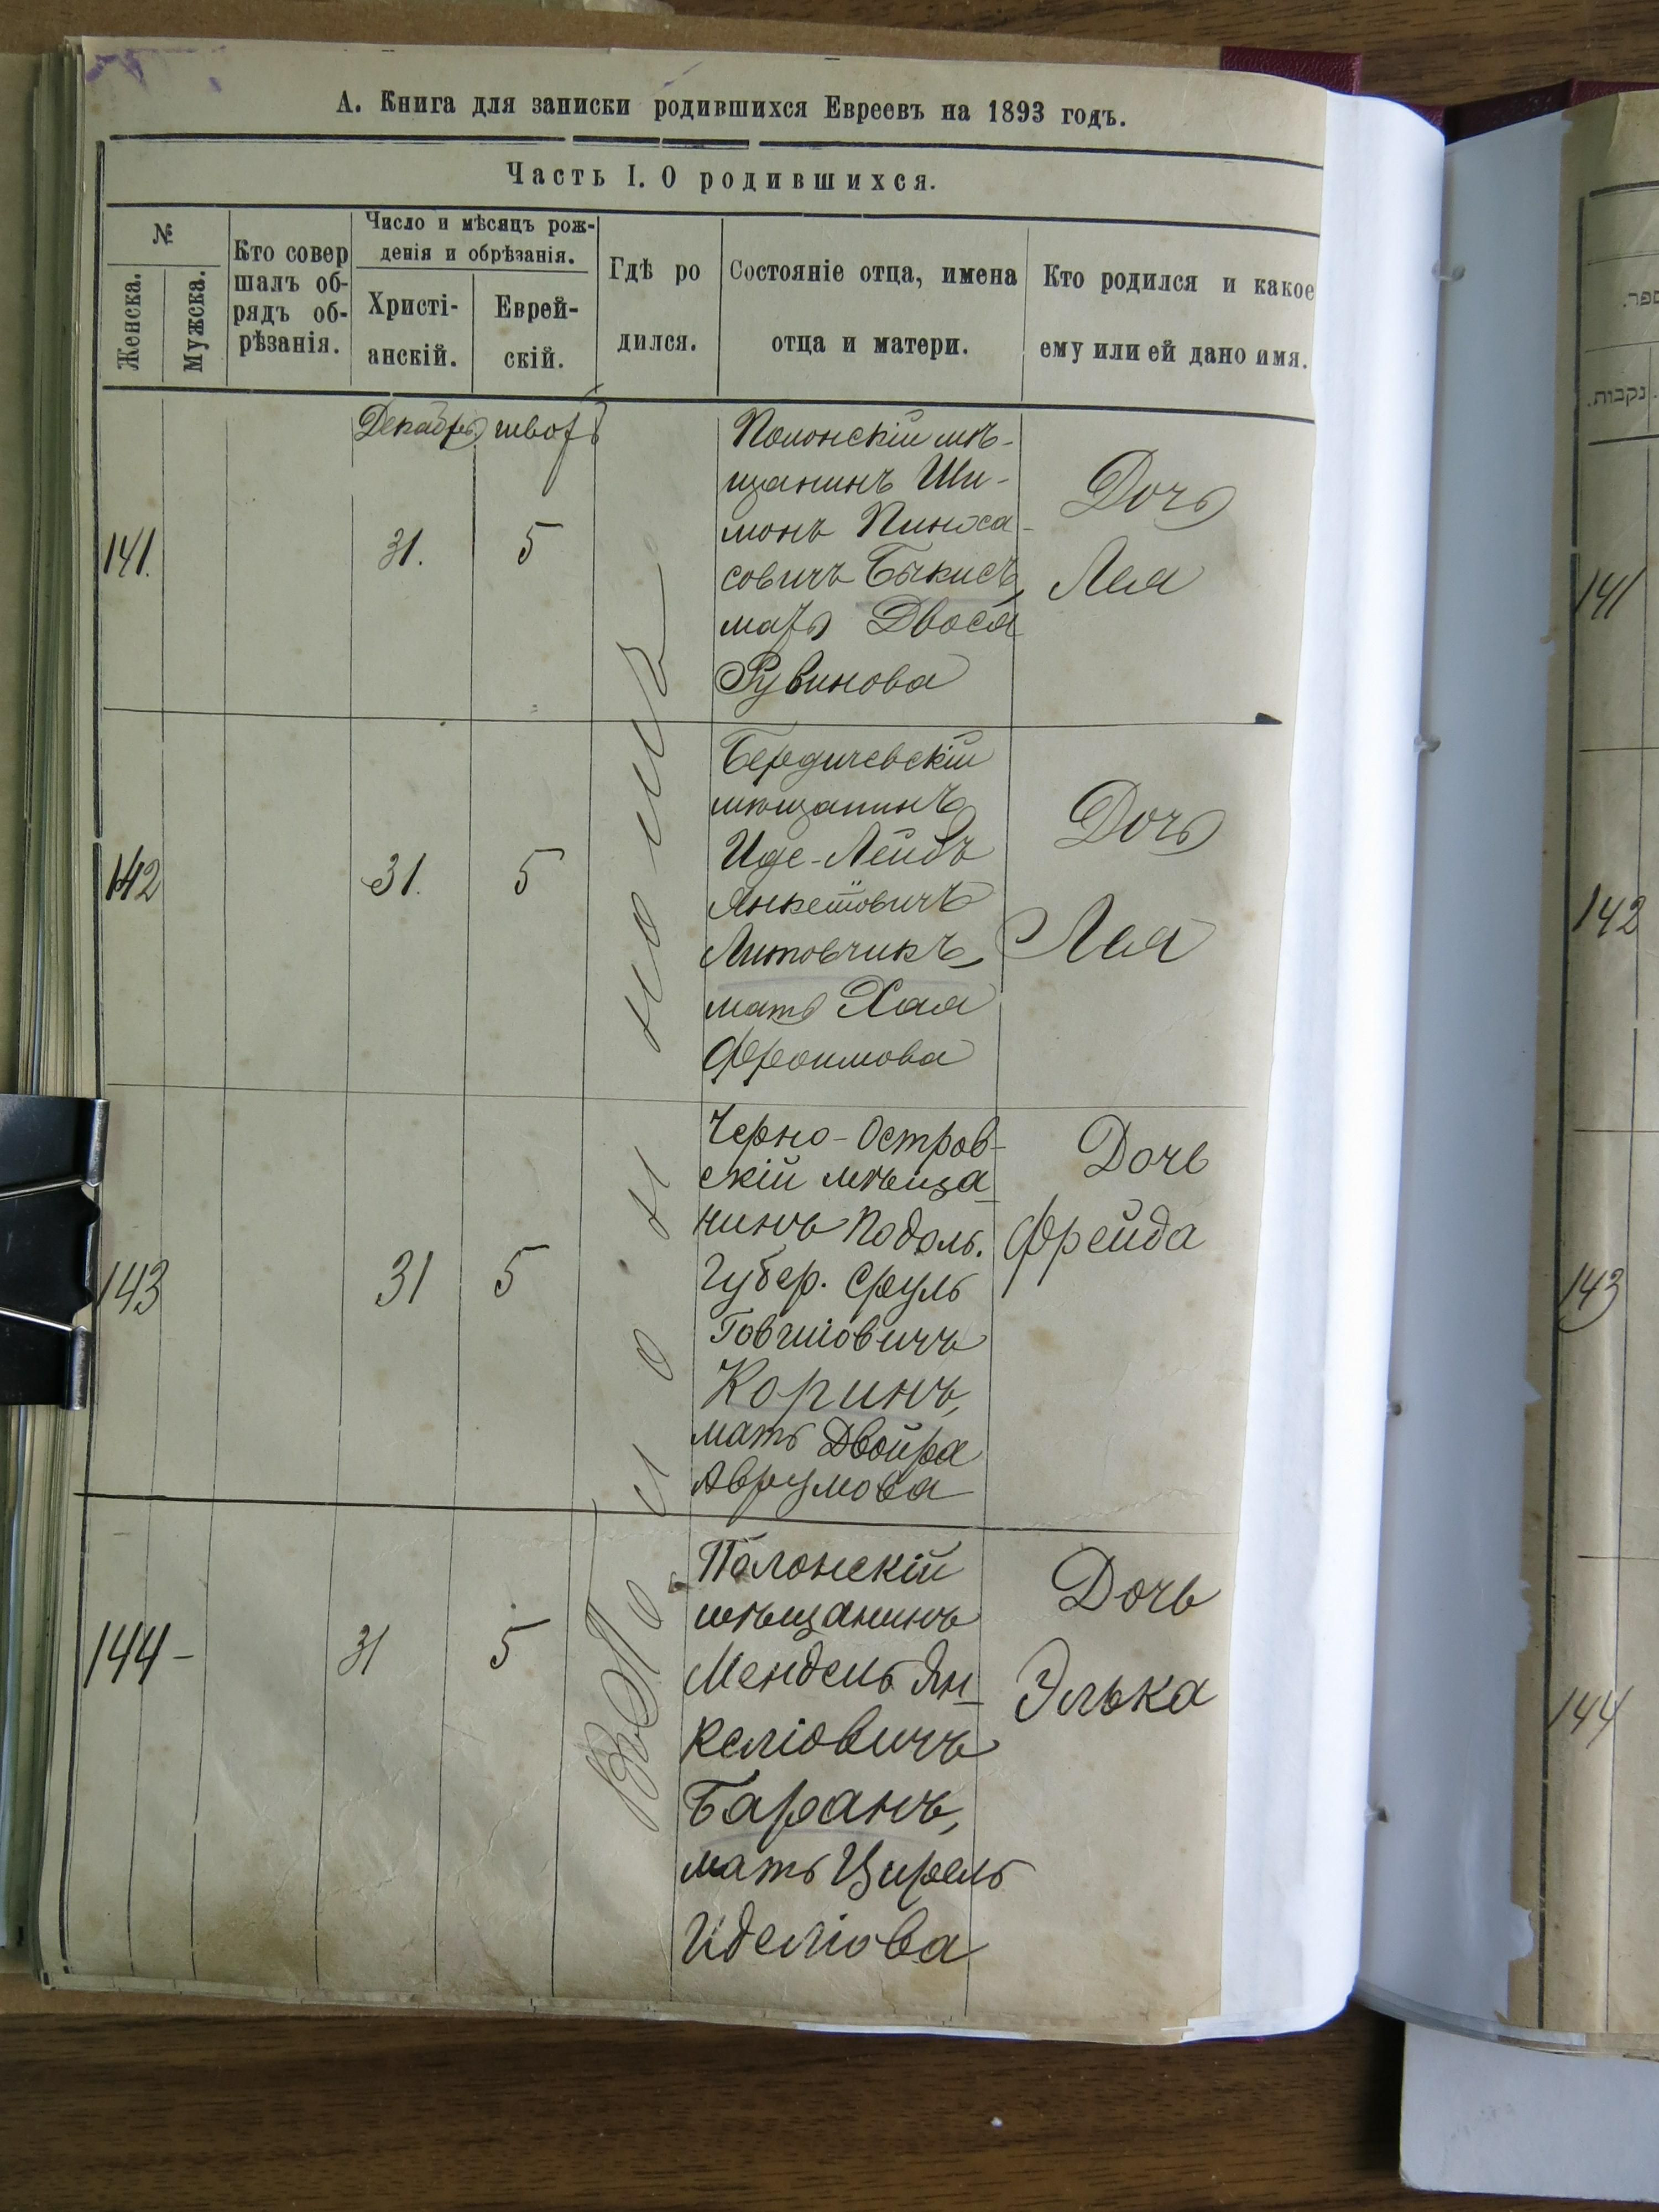 А. Книга для записки родившихся Евреевъ на 1893 годъ.
Часть I. О родившихся.
№
Женска.
Мужска.
Кто совер
шалъ об-
рядъ об-
рѣзанія.
Число и мѣсяцъ рож-
денія и обрѣзанія.
Христі-
анскій.
Еврей-
скій.
Гдѣ ро
дился.
Состояніе отца, имена
отца и матери.
Кто родился и какое
ему или ей дано имя.
Декабрь
швотъ
141.
31.
5
Полонскій мѣ-
щанинъ Ши-
монъ Пинха-
совичъ Быкисъ,
мать Двося
Рувинова
Дочь
Лея
142
31.
5
Бердичевскій
мѣщанинъ
Иде-Лейбъ
Литовчикъ,
мать Хая
Фроимова
Дочь
Лея
143
31
5
Черно-Остров-
скій мѣща-
нинъ Подоль.
Губер. Сруль
Говшіовичъ
Коринъ,
мать Двойра
Аврумова
Дочь
Фрейда
144-
31
5
Полонскій
мѣщанинъ
Мендель Ян-
келіовичъ
Баранъ,
мать Цирель
Иделіова
Дочь
Элька
Въ Полонномъ
נקבות.
141
142
143
144